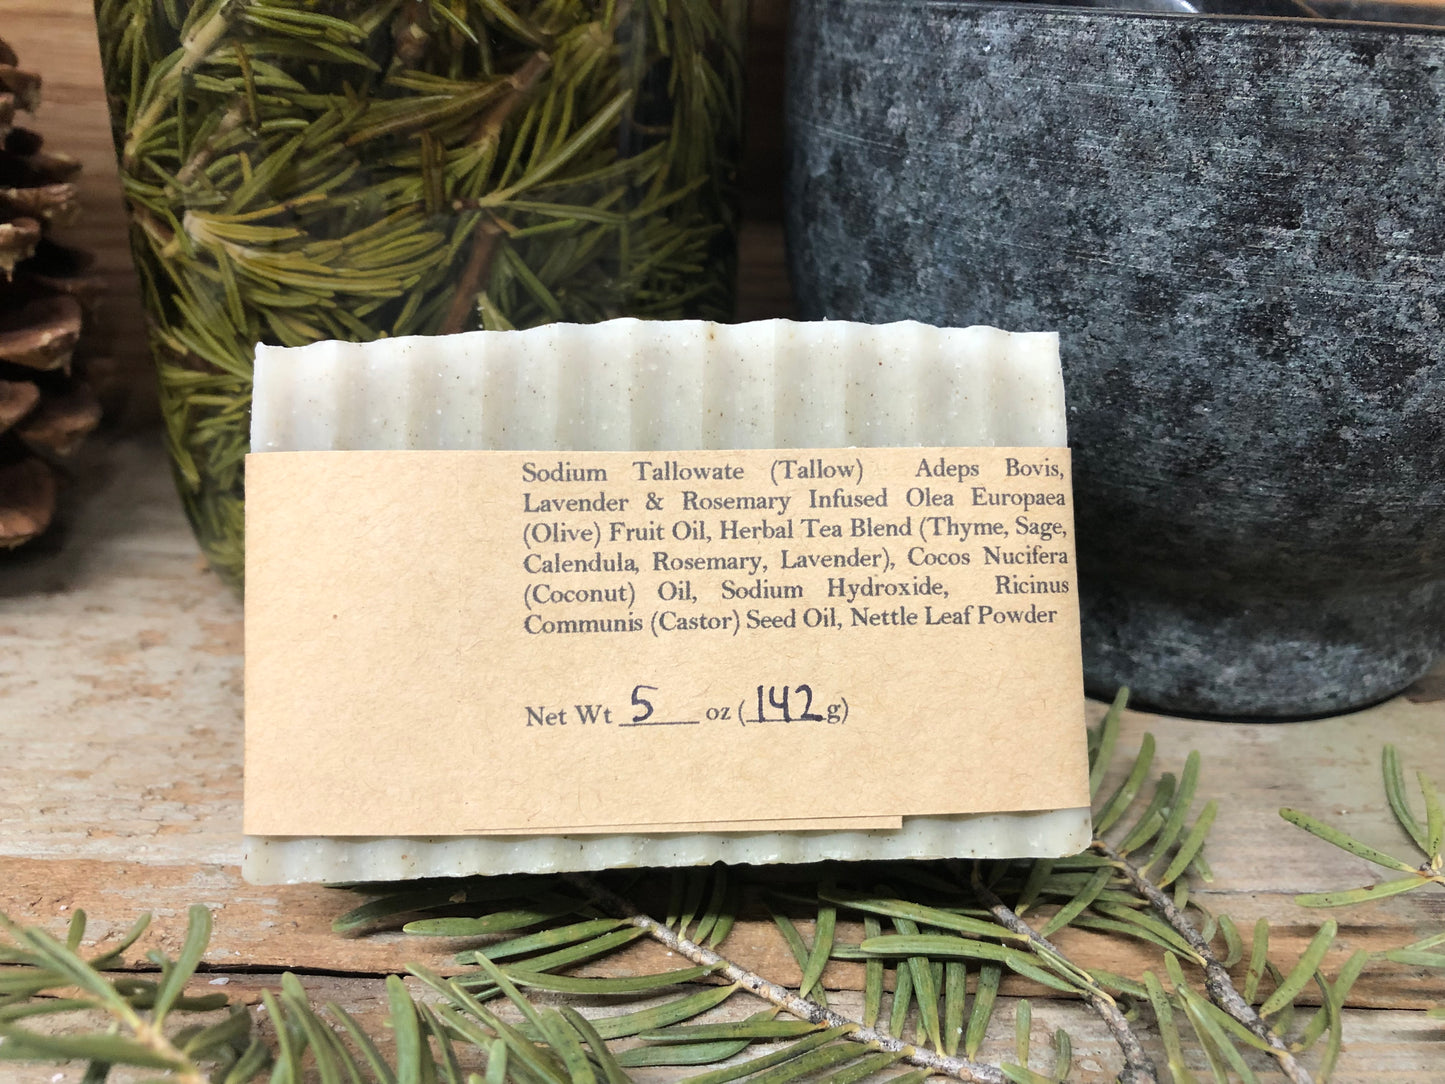 Sodium Tallowate (Tallow) Adeps Bovis,
Lavender & Rosemary Infused Olea Europaea
(Olive) Fruit Oil, Herbal Tea Blend (Thyme, Sage,
Calendula, Rosemary, Lavender), Cocos Nucifera
(Coconut) Oil, Sodium Hydroxide, Ricinus
Communis (Castor) Seed Oil, Nettle Leaf Powder
Net Wt 5 oz (142g)